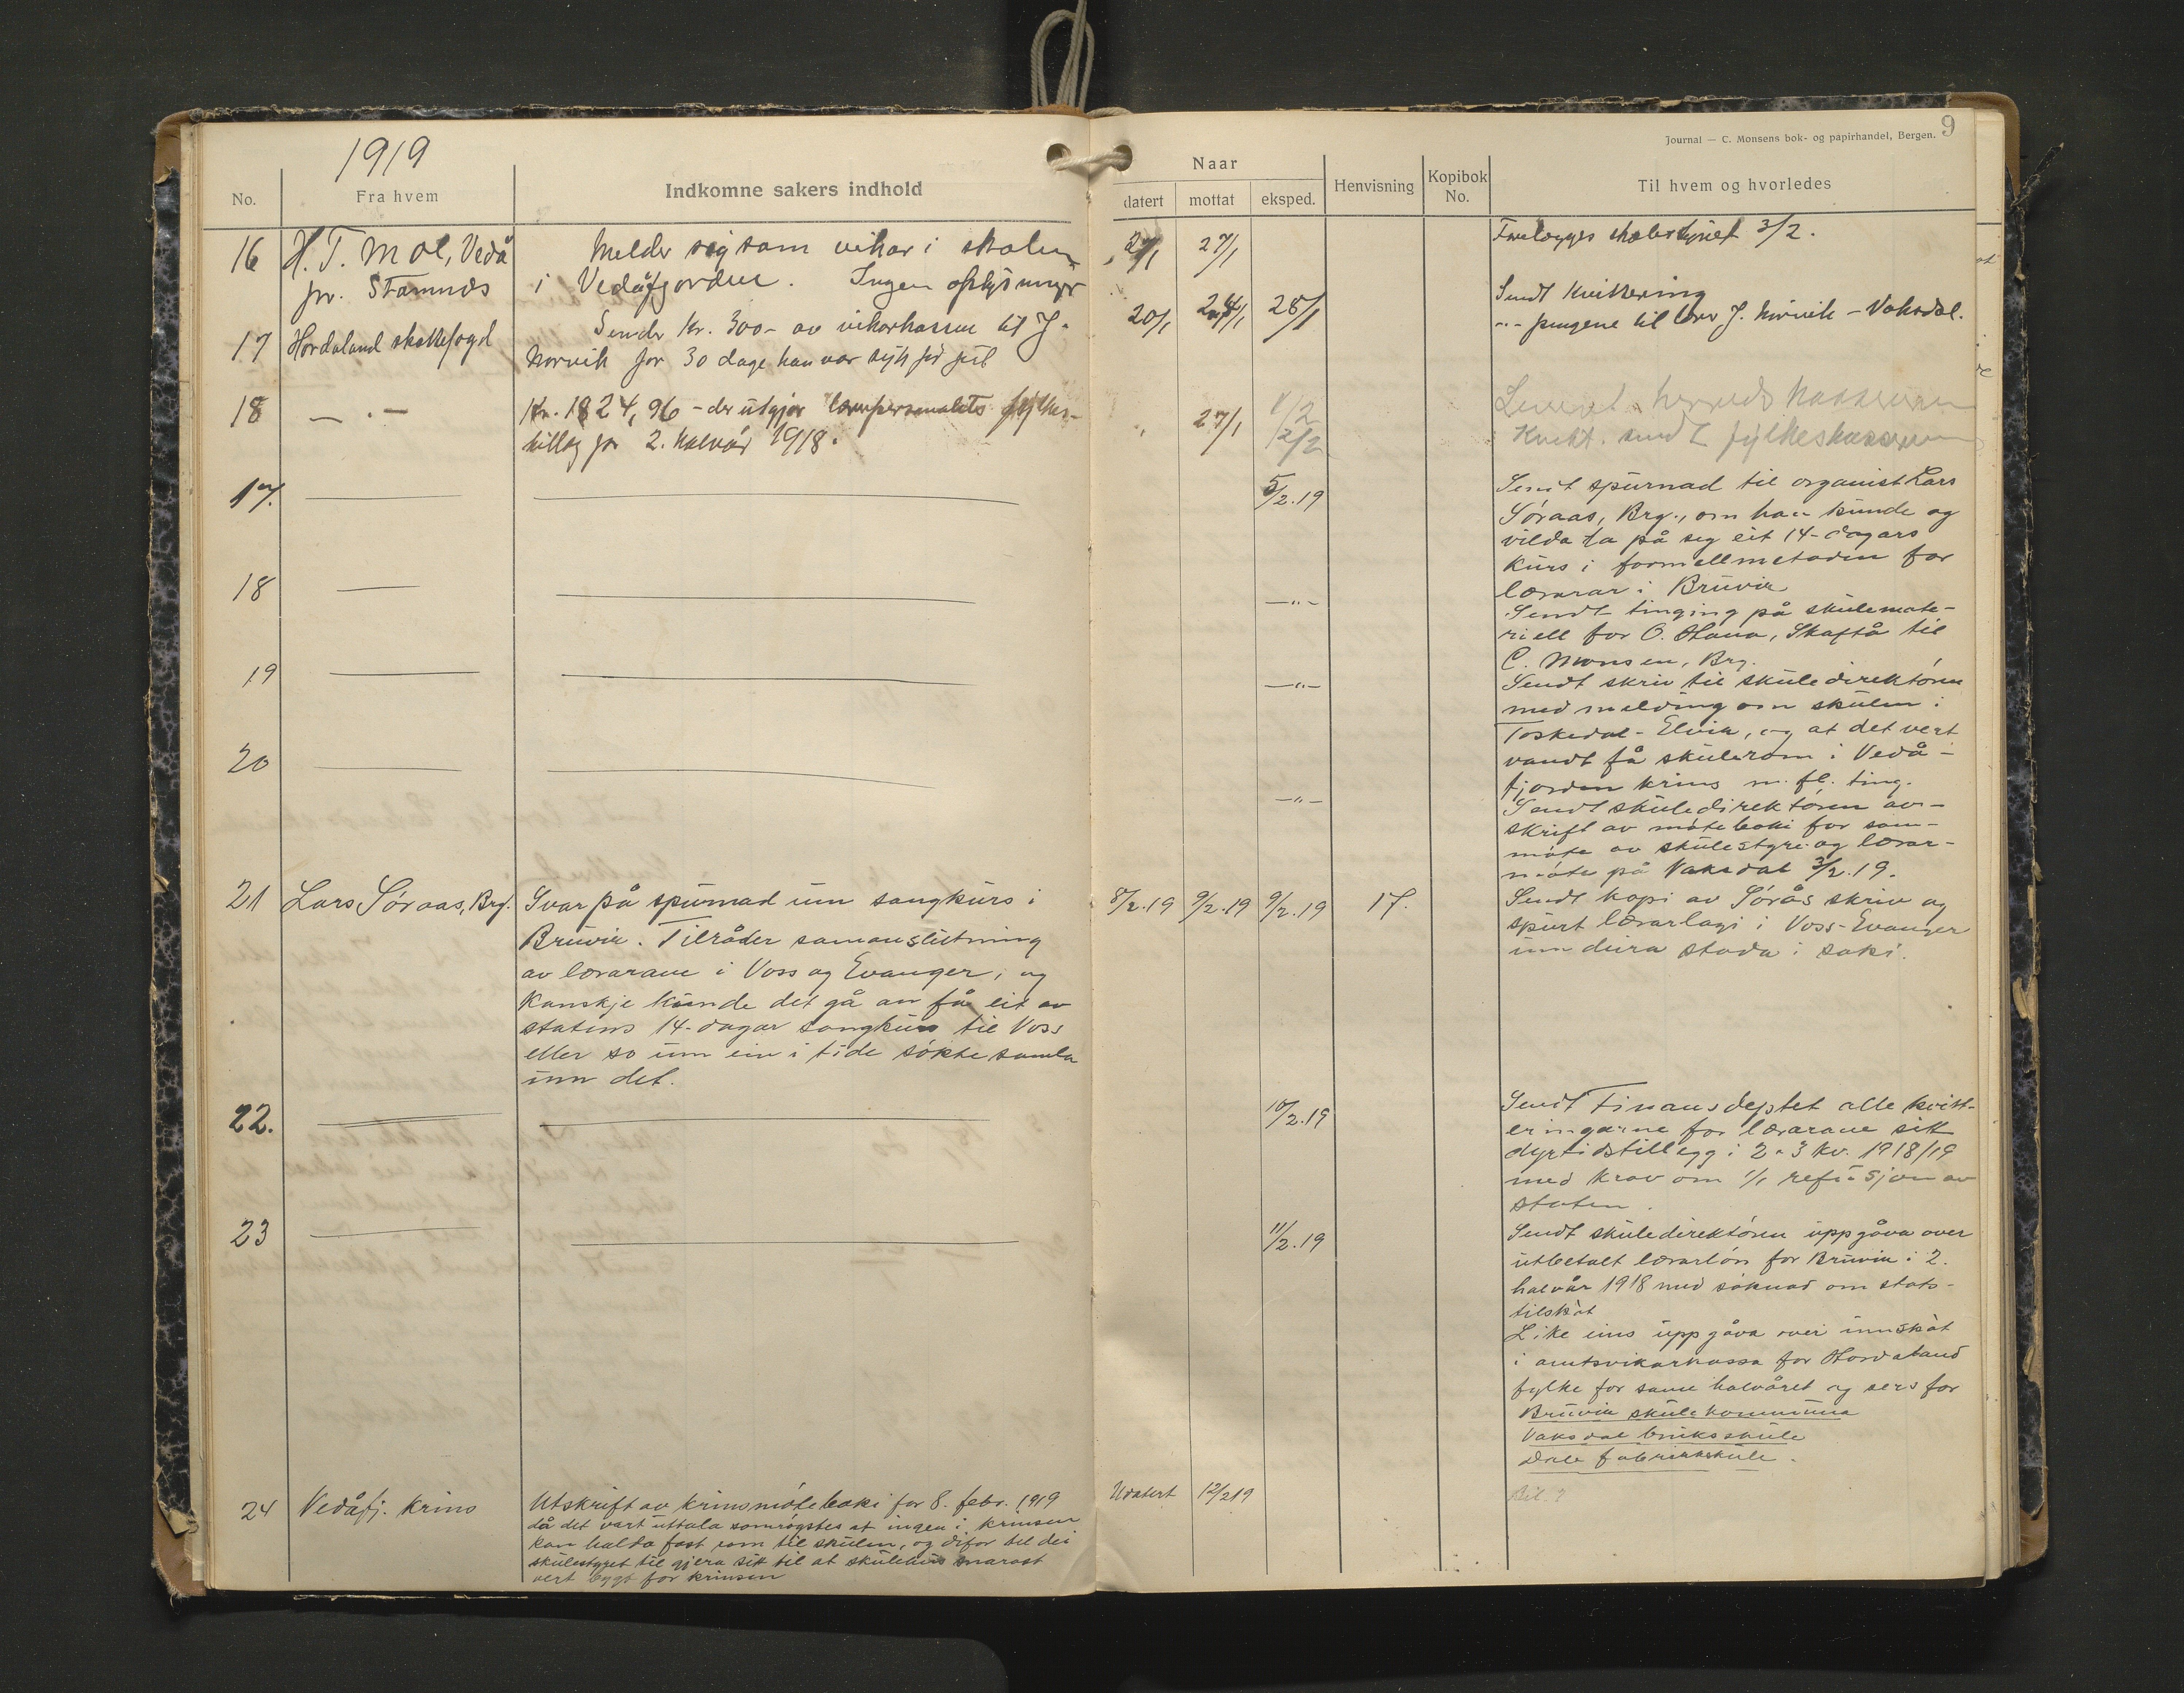 1919
No.
Fra hvem
Indkomne sakers indhold
16
H. T. Moe, Vedå
pr. Stamnes
Melder sig som vikar i skolen
i Vedåfjorden. Ingen oplysninger
17
Hordaland skattefogd
Sender kr. 300- av vikarkassen til J.
Norvik for 30 dage han var syk før jul
18
— . —
Kr. 1824,96 - der utgjør lærerpersonalets fylkes-
tillæg for 2. halvår 1918.
17.
18
19
20
21
Lars Søraas, Brg.
Svar på spurnad um songkurs i
Bruvik. Tilråder samanslutning
av lærarane i Voss og Evanger, og
kanskje kunde det gå an få eit av
statens 14-dagar songkurs til Voss
eller so um ein i tide søkte samla
um det.
22.
23
24
Vedåfj. krins
Utskrift av krinsmøteboki for 8. febr. 1919
då det vart uttala samrøystes at ingen i krinsen
kan halda fast rom til skulen, og difor bed dei
skulestyret til gjera sitt til at skulehus snarast
vert bygt for krinsen
Journal — C. Monsens bok- og papirhandel, Bergen.
9
Naar
datert
mottat
eksped.
Henvisning
Kopibok
No.
Til hvem og hvorledes
27/1
27/1
Forelægges skolestyret 3/2.
20/1
24/1
28/1
Sendt kvittering
-"- pengene til lærer J. Norvik - Vaksdal.
"
27/1
1/2
12/2
Levert herredskassereren
Kvitt. sendt fylkeskassereren
5/2.19
Sendt spurnad til organist Lars
Søraas, Brg., om han kunde og
vilda ta på seg eit 14-dagars
kurs i formellmetoden for
lærarar i Bruvik
—"—
Sendt tinging på skulemate-
riell for O. Hana, Skaftå til
C. Monsen, Brg.
—"—
Sendt skriv til skuledirektøren
med melding om skulen i
Toskedal - Elvik, og at det vert
vandt få skulerom i Vedå-
fjorden krins m. fl. ting.
—"—
Sendt skuledirektøren av-
skrift av møteboki for sam-
møte av skulestyre og lærar-
møte på Vaksdal 3/2.19.
8/2.19
9/2.19
9/2.19
17.
Sendt kopi av Sørås skriv og
spurt lærarlagi i Voss-Evanger
um deira stoda i saki.
10/2.19
Sendt Finansdeptet alle kvitt-
eringarne for lærarane sitt
dyrtidstillegg i 2 & 3 kv. 1918/19
med krav om 1/1 refusjon av
staten.
11/2.19
Sendt skuledirektøren uppgåva over
utbetalt lærarløn for Bruvik i 2.
halvår 1918 med søknad om stats-
tilskot
Like eins uppgåva over innskot
i amtsvikarkassa for Hordaland
fylke for same halvåret og sers for
Bruvik skulekommuna
Vaksdal bruksskule
Dale fabrikkskule.
Udatert
12/2 19
Bil. 9